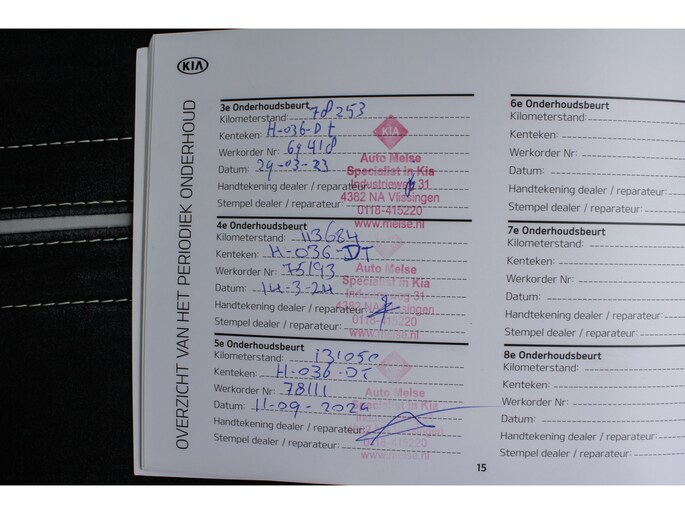 KIA
OVERZICHT VAN HET PERIODIEK ONDERHOUD
3e Onderhoudsbeurt
Kilometerstand: 78253
Kenteken: H-036-Dt
Werkorder Nr: 69418
Datum: 29-03-23
Handtekening dealer / reparateur:
Stempel dealer / reparateur:
KIA
Auto Meise
Specialist in Kia
Industrieweg 31
4382 NA Vlissingen
0118-415220
www.meise.nl
4e Onderhoudsbeurt
Kilometerstand: 113684
Kenteken: H-036-DT
Werkorder Nr: 75193
Datum: 14-3-24
Handtekening dealer / reparateur:
Stempel dealer / reparateur:
Auto Meise
Specialist in Kia
Industrieweg 31
4382 NA Vlissingen
0118-415220
www.meise.nl
5e Onderhoudsbeurt
Kilometerstand: 131050
Kenteken: H-036-DT
Werkorder Nr: 78111
Datum: 11-09-2024
Handtekening dealer / reparateur:
Stempel dealer / reparateur:
Auto Meise
Specialist in Kia
0118-415220
www.meise.nl
15
6e Onderhoudsbeurt
Kilometerstand:
Kenteken:
Werkorder Nr:
Datum:
Handtekening dealer / reparateur:
Stempel dealer / reparateur:
7e Onderhoudsbeurt
Kilometerstand:
Kenteken:
Werkorder Nr:
Datum:
Handtekening dealer / reparateur:
Stempel dealer / reparateur:
8e Onderhoudsbeurt
Kilometerstand:
Kenteken:
Werkorder Nr:
Datum:
Handtekening dealer / reparateur:
Stempel dealer / reparateur: